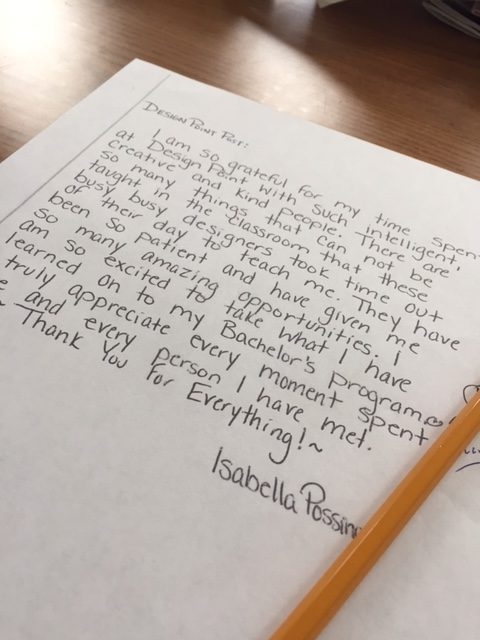 DESIGN POINT POST:
I am so grateful for my time spen
at Design Point with such intelligent,
creative and kind people. There are
so many things that can not be
taught in the classroom that these
busy busy designers took time out
of their day to teach me. They have
been so patient and have given me
so many amazing opportunities. I
am so excited to take what I have
learned on to my Bachelor's program
truly appreciate every moment spent
and every person I have met.
~ Thank You For Everything! ~
Isabella Possin